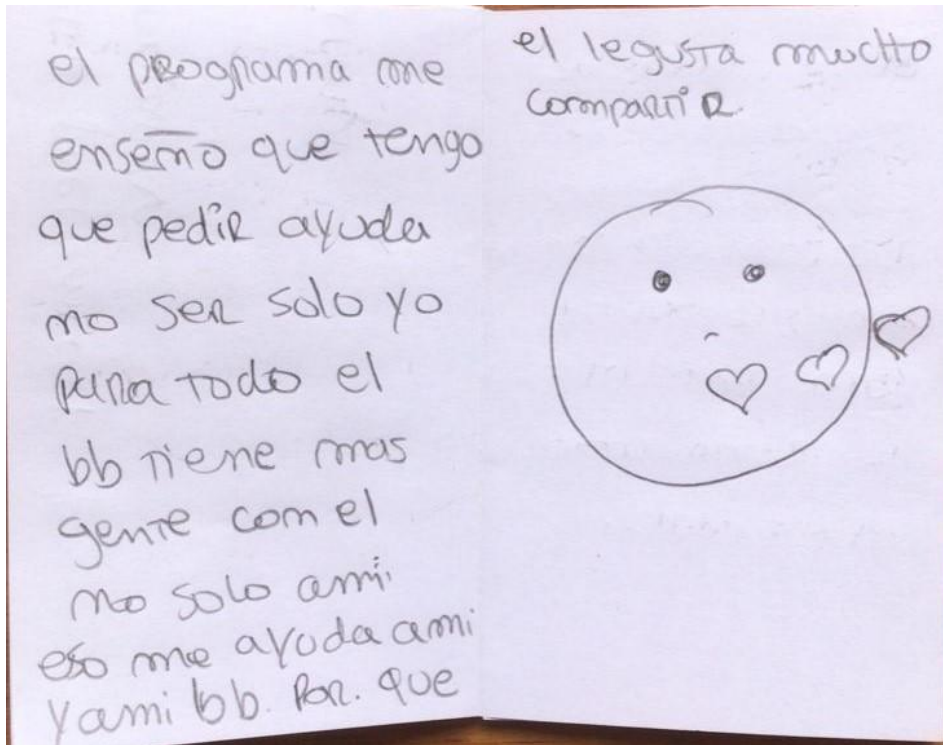 el programa me
enseño que tengo
que pedir ayuda
no ser solo yo
para todo el
bb tiene mas
gente con el
no solo ami
eso me ayuda ami
yami bb. Por. que
el legusta mucho
compartir